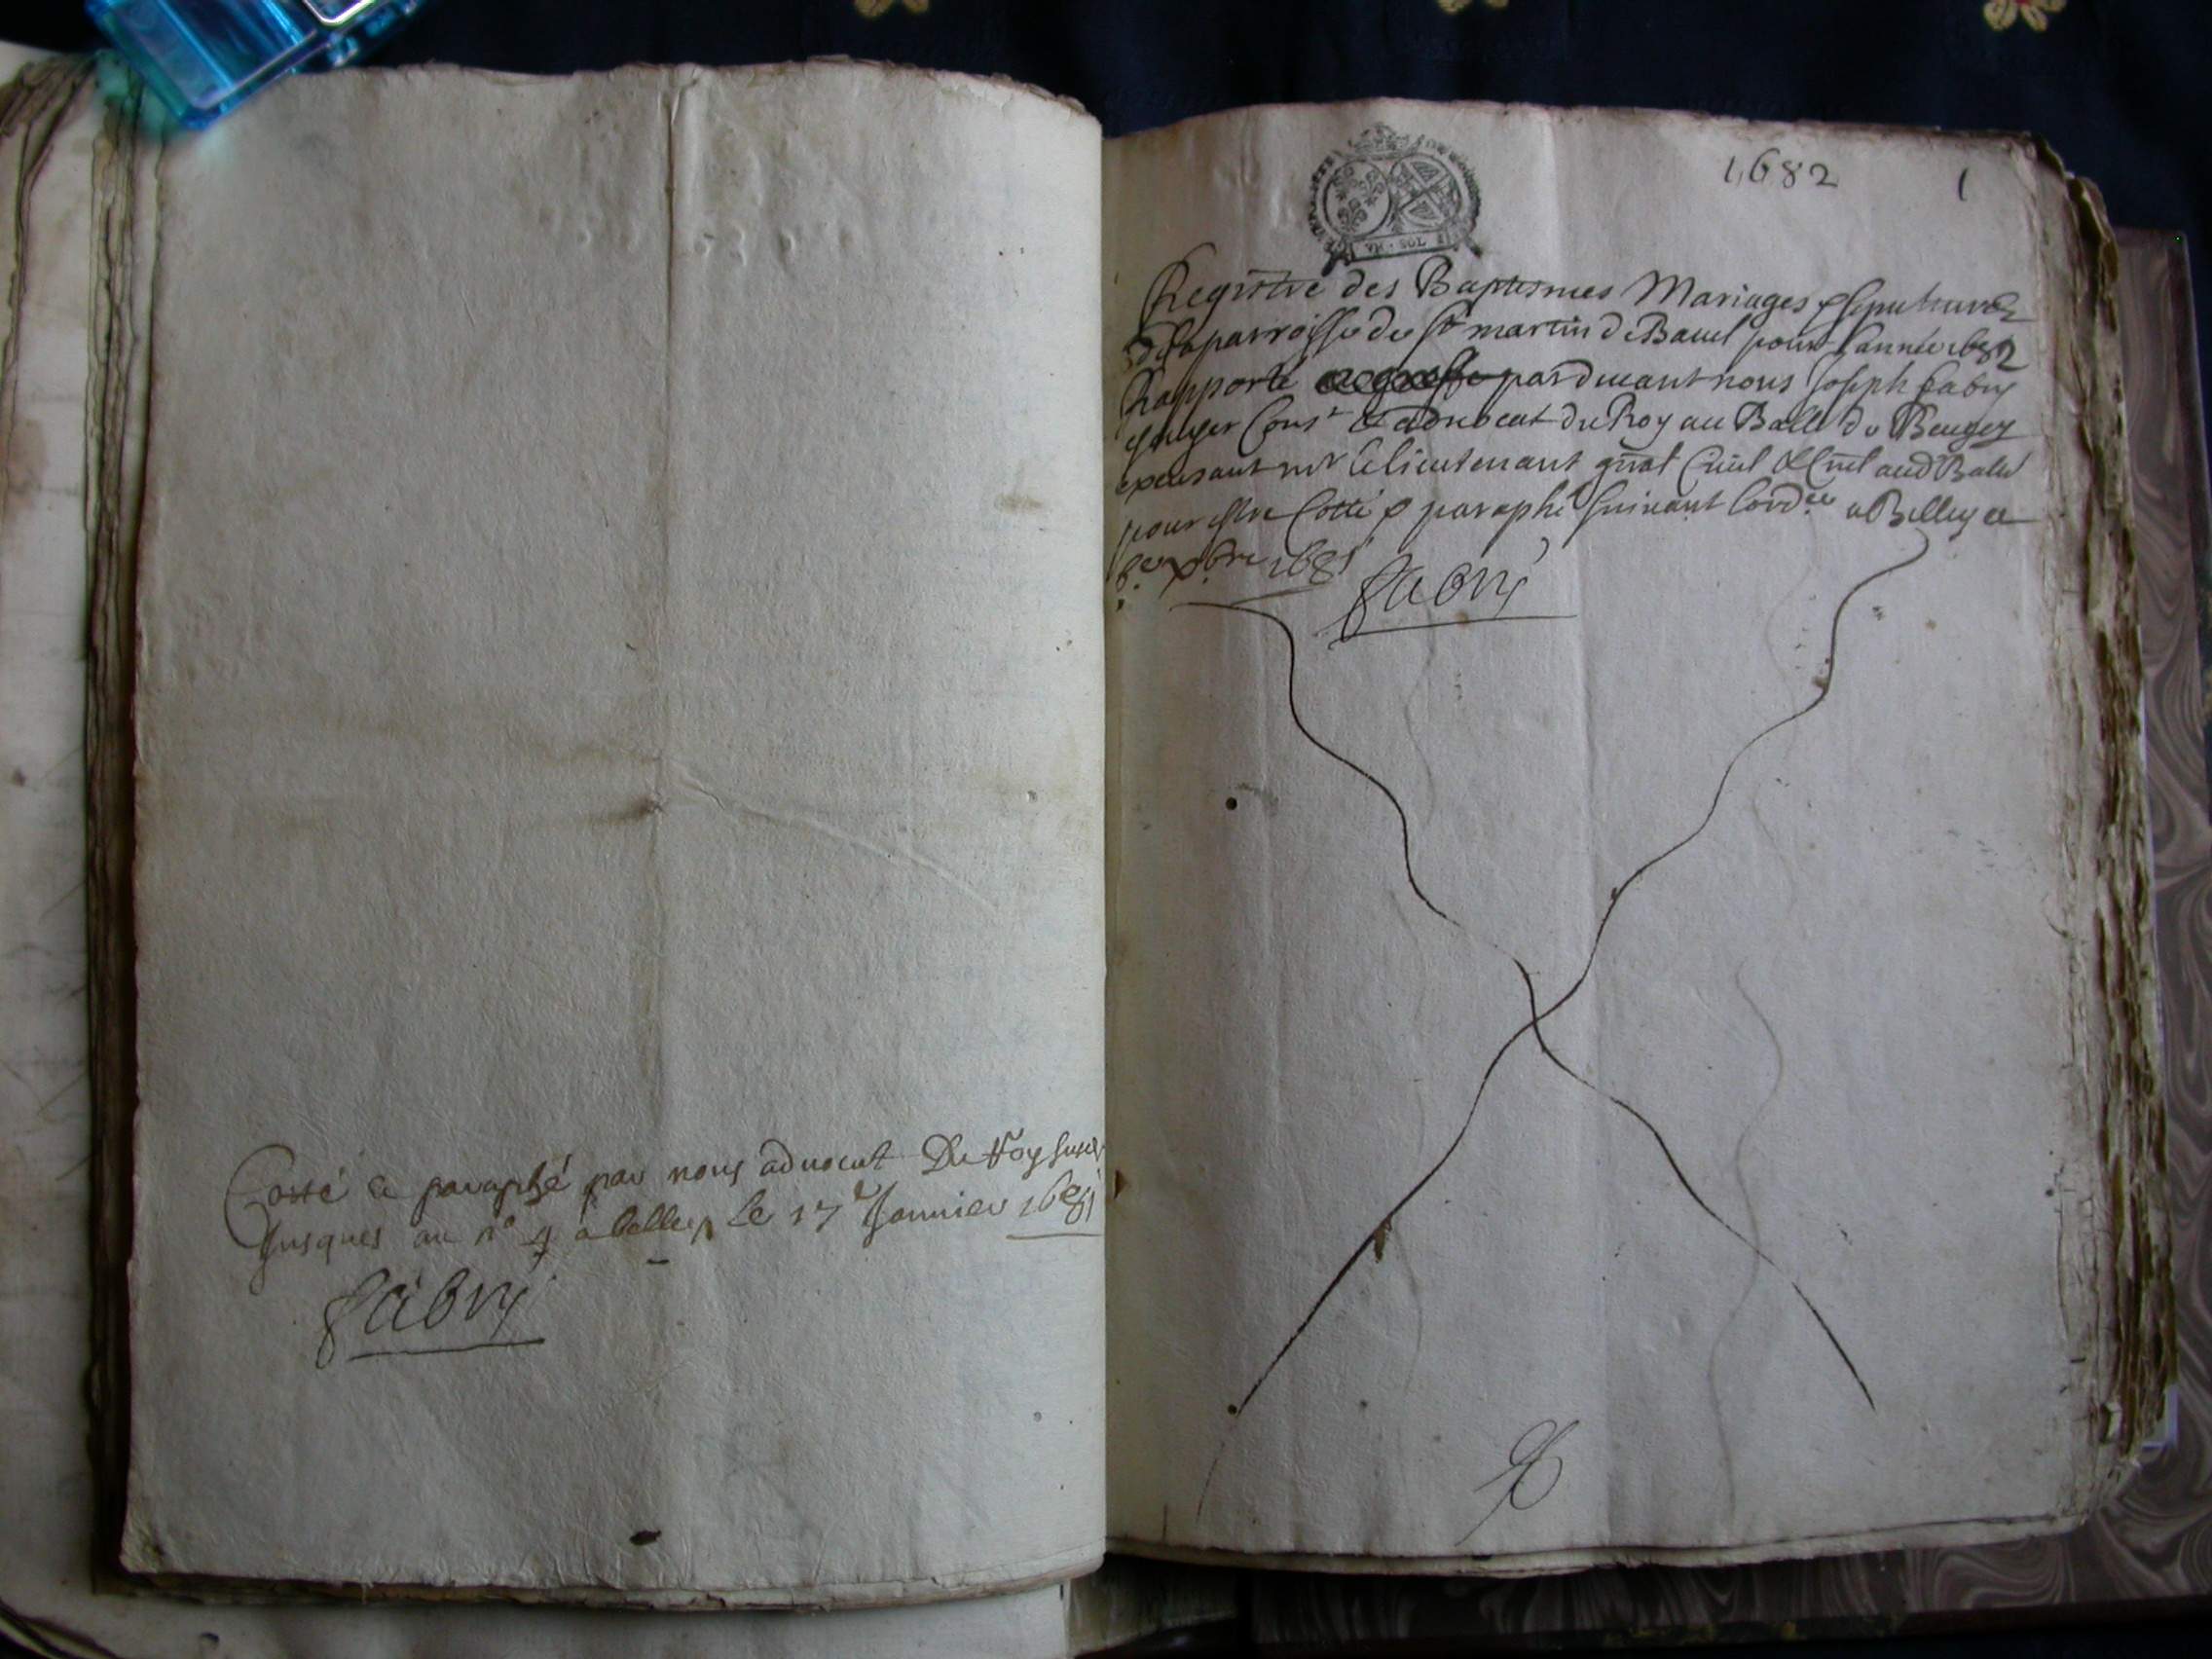 Cotté & paraphé par nous advocat Du Roy
Jusques au n° 4 a belley Le 17e Januier 1681
fabry
1682 1
VN · SOL
Registre des Baptesmes Mariages & sepultures
de la parroisse de st martin de Bauel pour l'année 1682
Rapporté par deuant nous Joseph fabry
escuyer Consr & aduocat du Roy au Balle du Beugey
exersant mr le lieutenant gñal Ciuil & Cñel aud Balle
pour estre Cotté & paraphé suiuant lord.ce a Belley ce
8.e xbre 1681
fabry